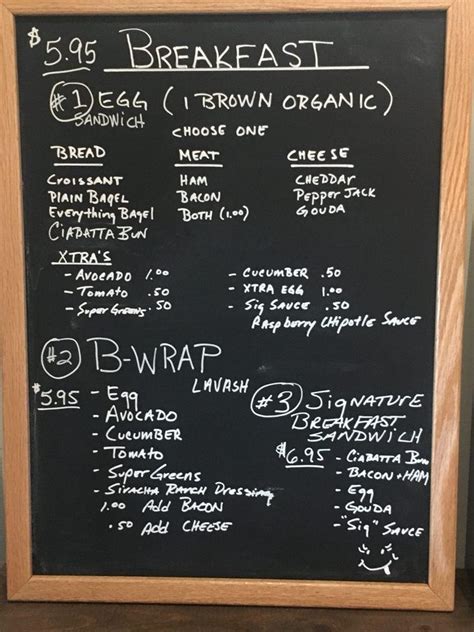 $5.95 BREAKFAST
#1 EGG (1 BROWN ORGANIC)
SANDWICH
CHOOSE ONE
BREAD
CROISSANT
PLAIN BAGEL
EVERYthING BAGEL
CIABATTA BUN
MEAT
HAM
BACON
BOTH (1.00)
CHEESE
CHEDDAR
PEPPER JACK
GOUDA
XTRA'S
- AVOCADO 1.00
- TOMATO .50
- SUPER GREENS .50
- CUCUMBER .50
- XTRA EGG 1.00
- SIG SAUCE .50
RASPBERRY CHIPOTLE SAUCE
#2 B-WRAP
LAVASH
$5.95
- EGG
- AVOCADO
- CUCUMBER
- TOMATO
- SUPER GREENS
- SIRACHA RANCH DRESSING
1.00 ADD BACON
.50 ADD CHEESE
#3 SIGNATURE
BREAKFAST
SANDWICH
$6.95 - CIABATTA BUN
- BACON + HAM
- EGG
- GOUDA
- "SIG" SAUCE